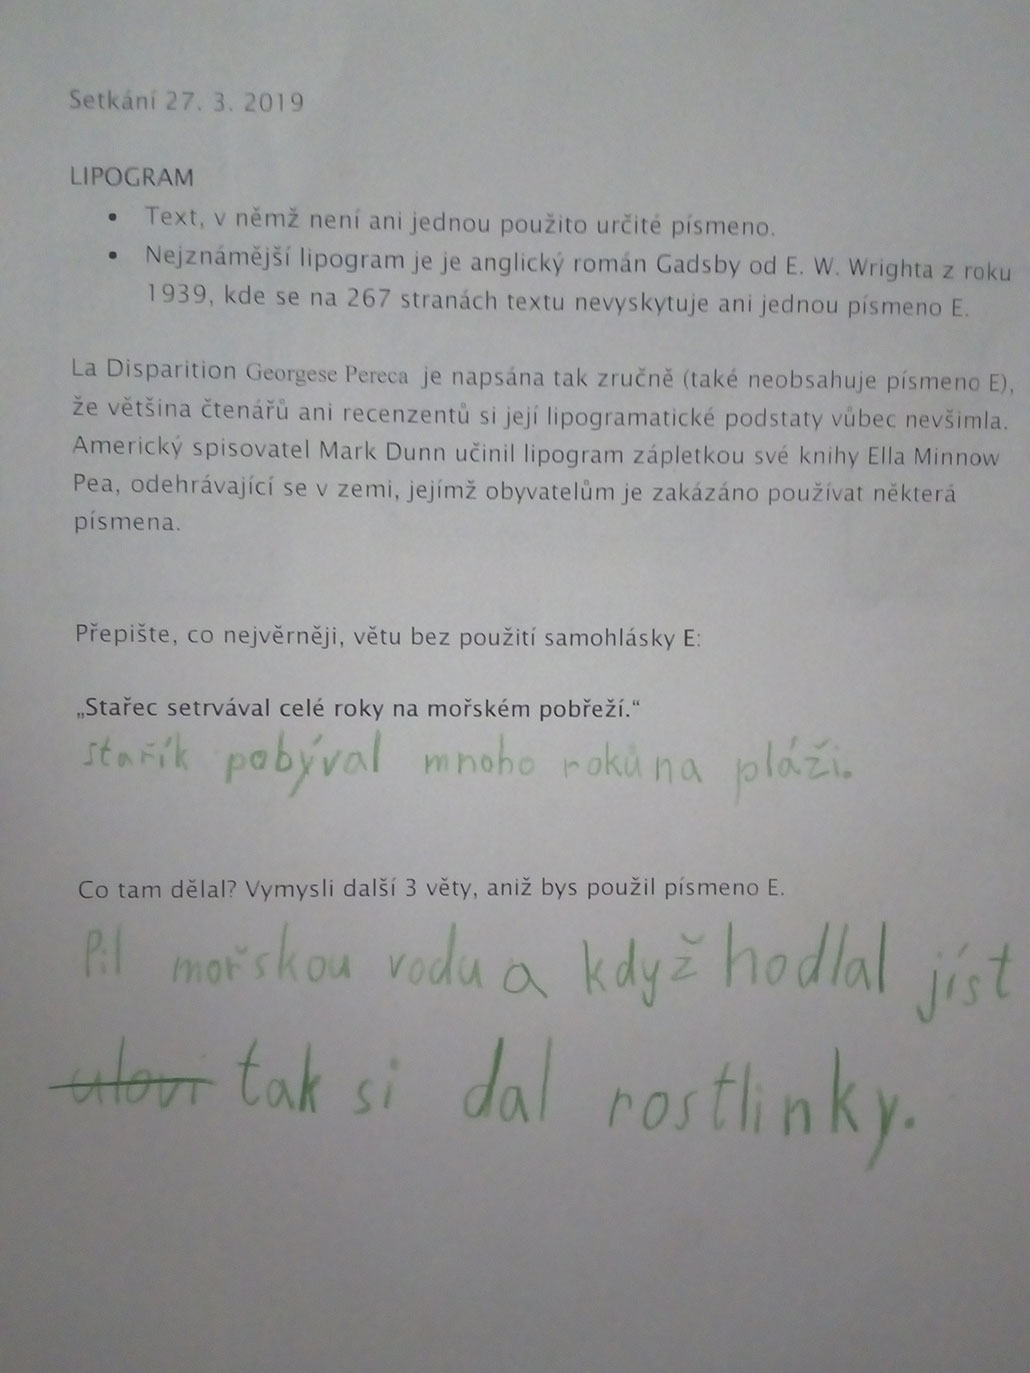 Setkání 27. 3. 2019
LIPOGRAM
• Text, v němž není ani jednou použito určité písmeno.
• Nejznámější lipogram je je anglický román Gadsby od E. W. Wrighta z roku
1939, kde se na 267 stranách textu nevyskytuje ani jednou písmeno E.
La Disparition Georgese Pereca je napsána tak zručně (také neobsahuje písmeno E),
že většina čtenářů ani recenzentů si její lipogramatické podstaty vůbec nevšimla.
Americký spisovatel Mark Dunn učinil lipogram zápletkou své knihy Ella Minnow
Pea, odehrávající se v zemi, jejímž obyvatelům je zakázáno používat některá
písmena.
Přepište, co nejvěrněji, větu bez použití samohlásky E:
„Stařec setrvával celé roky na mořském pobřeží.“
stařík pobýval mnoho roků na pláži.
Co tam dělal? Vymysli další 3 věty, aniž bys použil písmeno E.
Pil mořskou vodu a když hodlal jíst
ulovi tak si dal rostlinky.